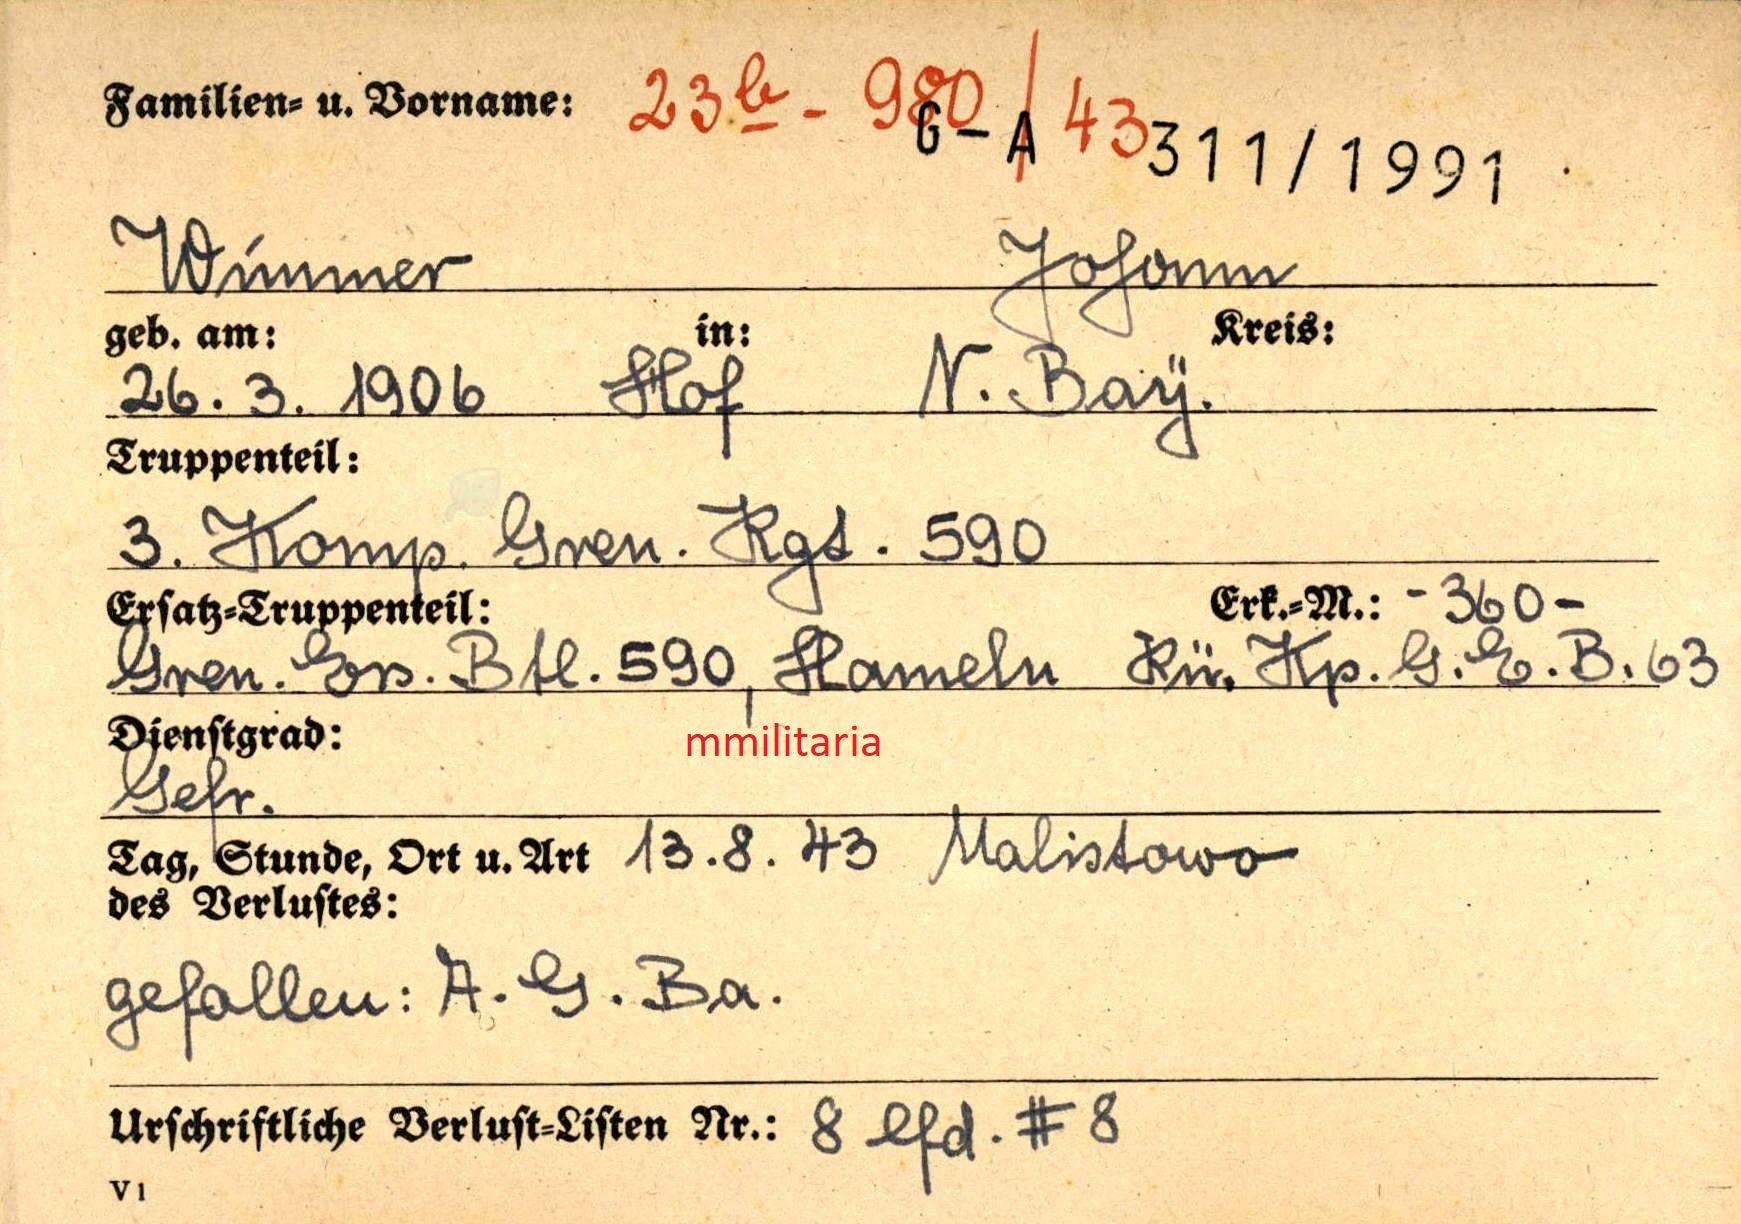 Familien- u. Vorname: 23b - 980/43
G-A 311/1991
Wimmer Johann
geb. am: in: Kreis:
26. 3. 1906 Hof N. Bay.
Truppenteil:
3. Komp. Gren. Rgt. 590
Ersatz-Truppenteil: Erk.-M.: -360-
Gren. Ers. Btl. 590, Hameln Rü. Kp. G. E. B. 63
mmilitaria
Dienstgrad:
Gefr.
Tag, Stunde, Ort u. Art 13.8.43 Malistowo
des Verlustes:
gefallen: A. G. Ba.
Urschriftliche Verlust-Listen Nr.: 8 lfd. # 8
V1